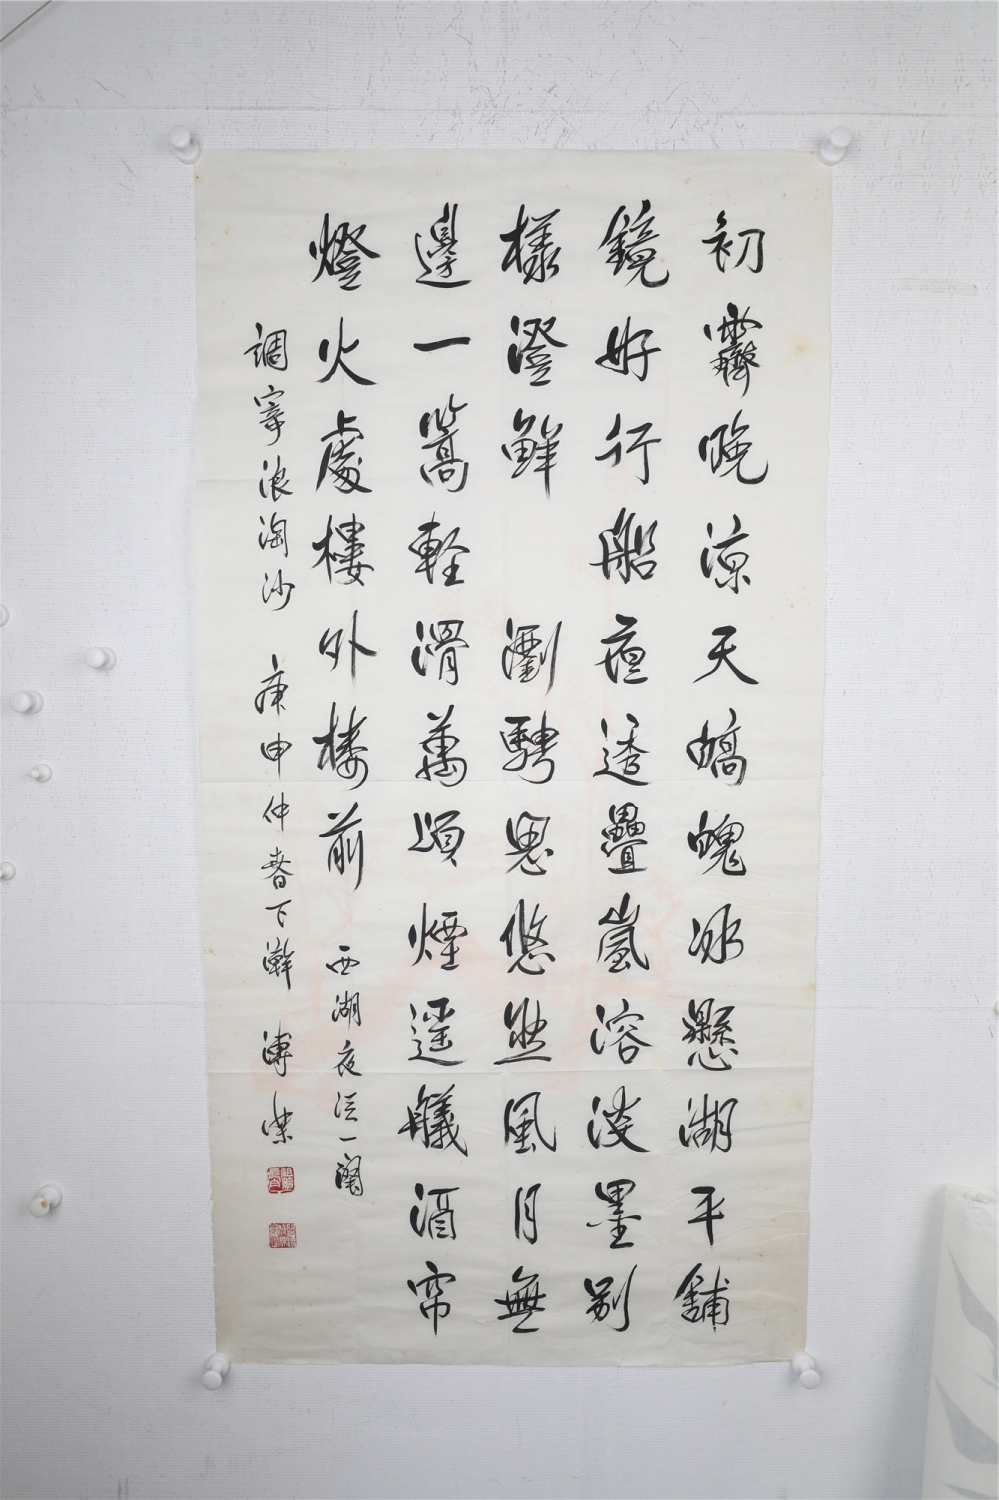 初霽晚涼天皜魄冰懸湖平舖
鏡好行船透疊嵐溶淡墨别
樣澄鮮 瀏騁思悠然風月無
邊一篙輕滑萬頃煙遥艤酒帘
燈火處樓外楼前 西湖夜泛一闋
調寄浪淘沙 庚申仲春下澣 溥傑